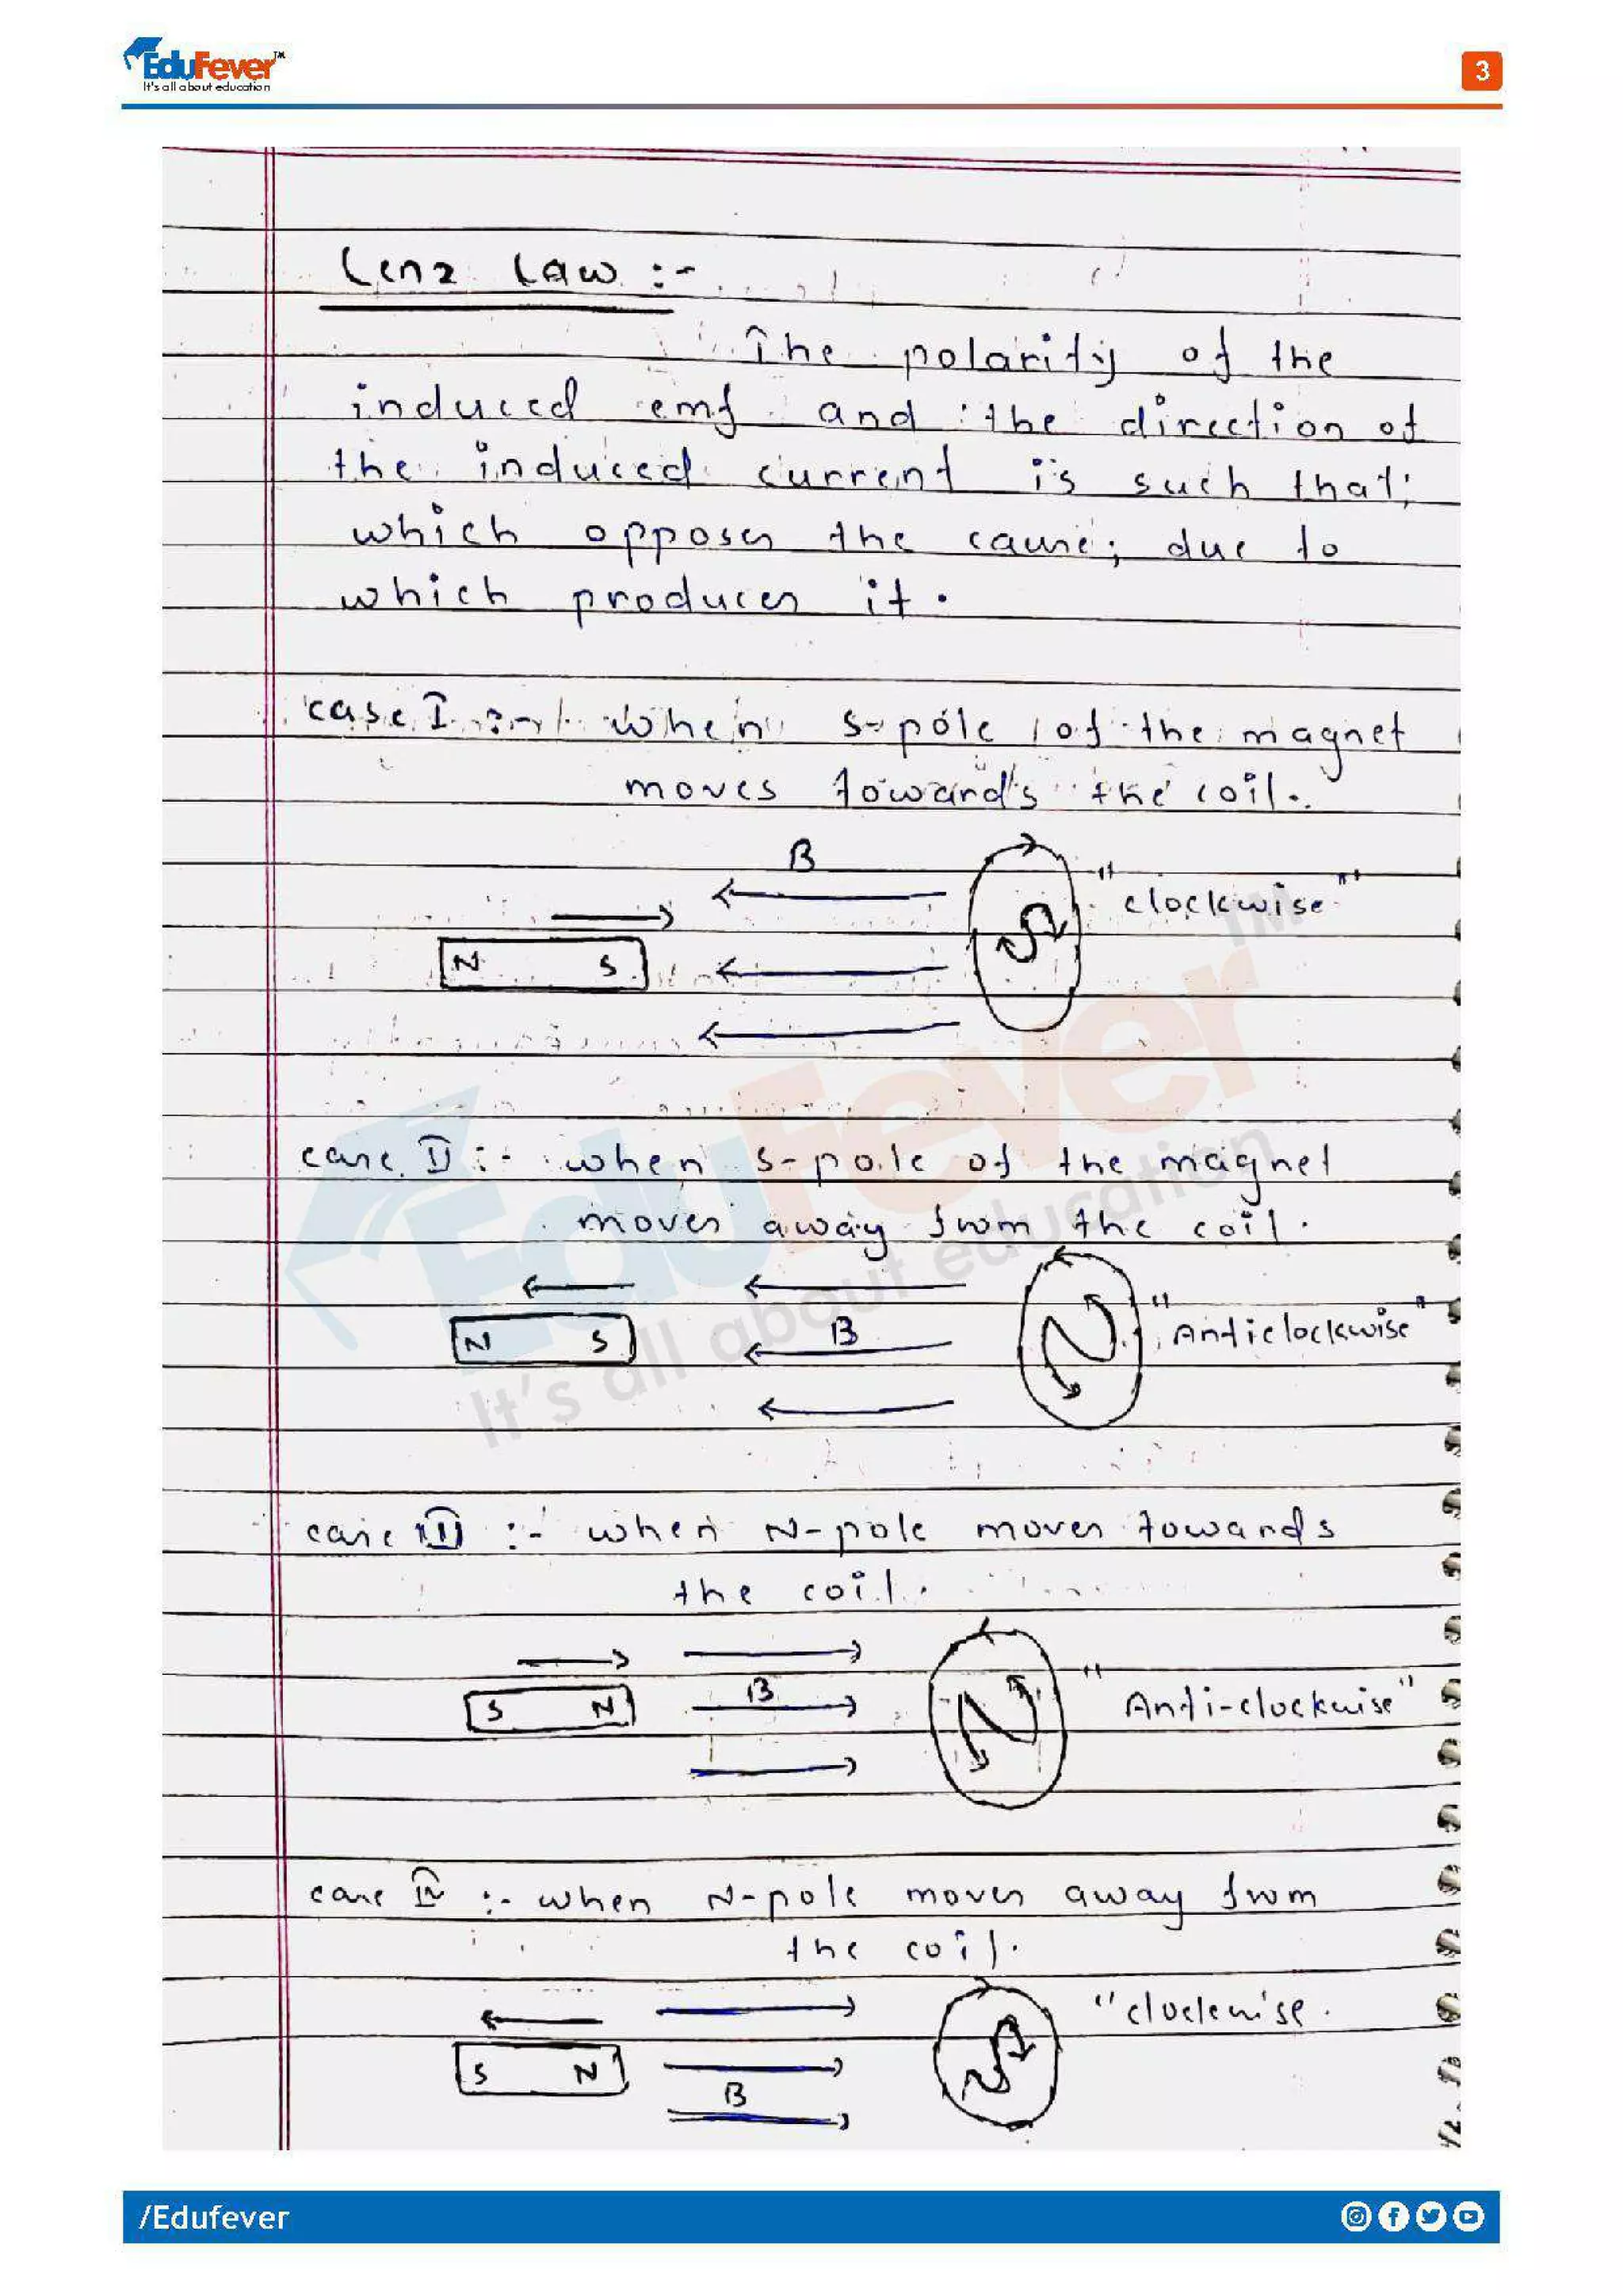 EduFever™
It's all about education
3
Lenz Law :-
The polarity of the
induced emf and the direction of
the induced current is such that;
which opposes the cause; due to
which produces it.
case I :- when S-pole of the magnet
moves towards the coil.
B
"clockwise"
N S
case II :- when S-pole of the magnet
moves away from the coil.
B
"Anticlockwise"
N S
case III :- when N-pole moves towards
the coil.
B
"Anti-clockwise"
S N
N
case IV :- when N-pole moves away from
the coil.
"clockwise.
S N
B
EduFever™
It's all about education
/Edufever